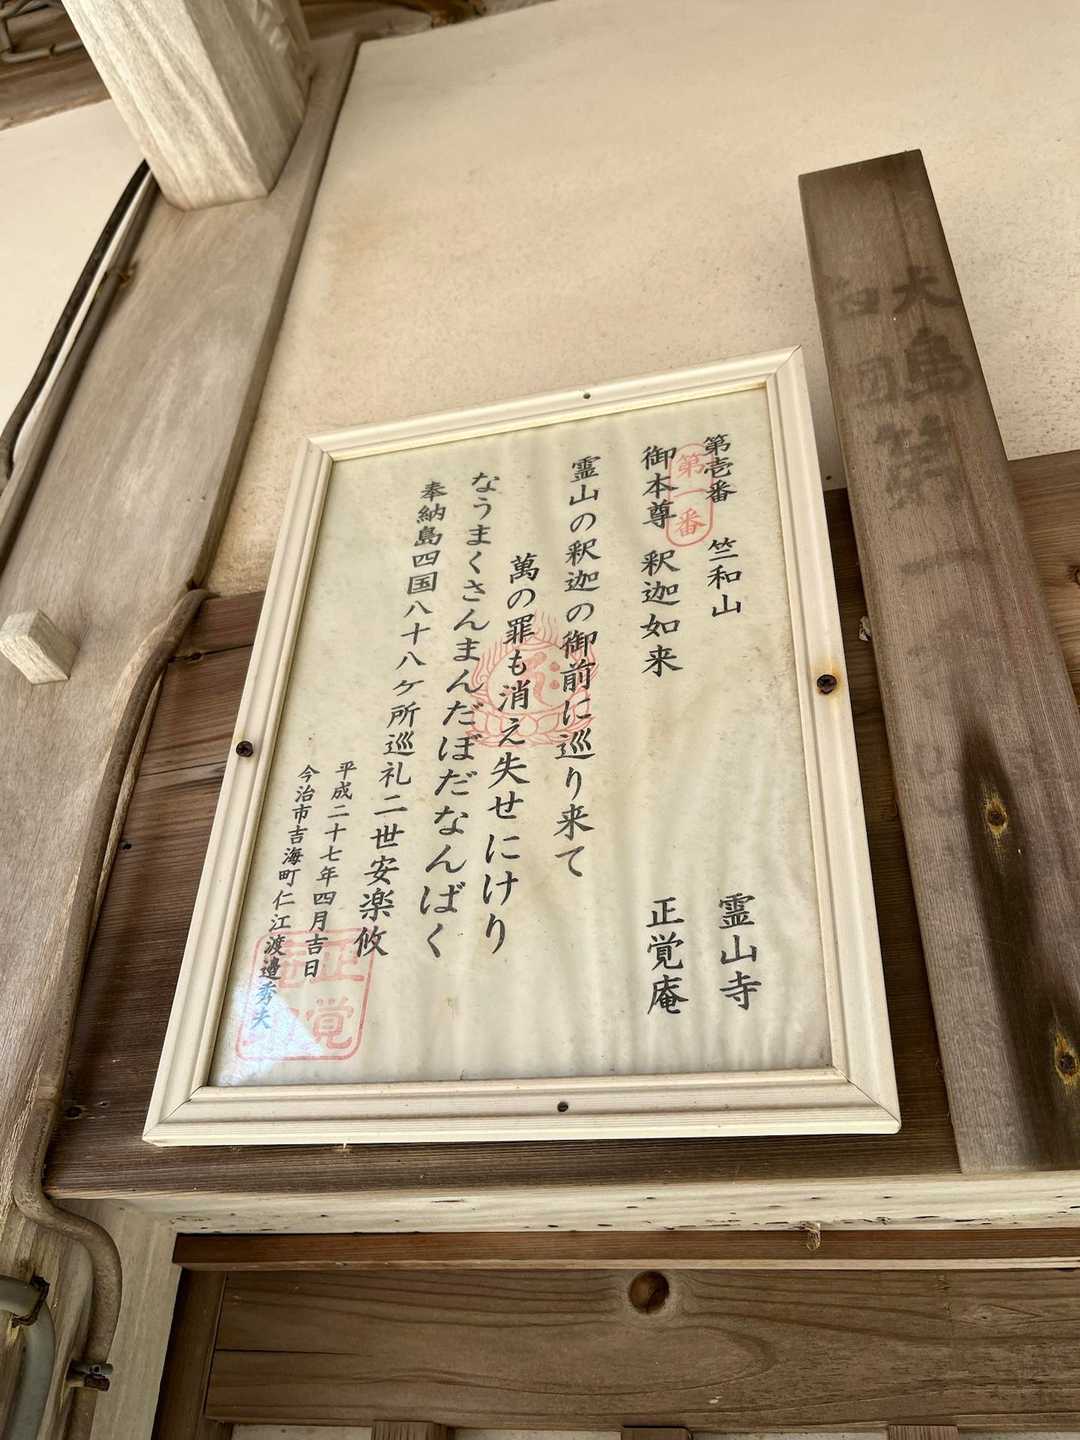 大島第一
第壱番 竺和山 霊山寺
第一番
御本尊 釈迦如来 正覚庵
霊山の釈迦の御前に巡り来て
萬の罪も消え失せにけり
なうまくさんまんだぼだなんばく
奉納島四国八十八ヶ所巡礼二世安楽攸
平成二十七年四月吉日
今治市吉海町仁江渡邉秀夫
正覚